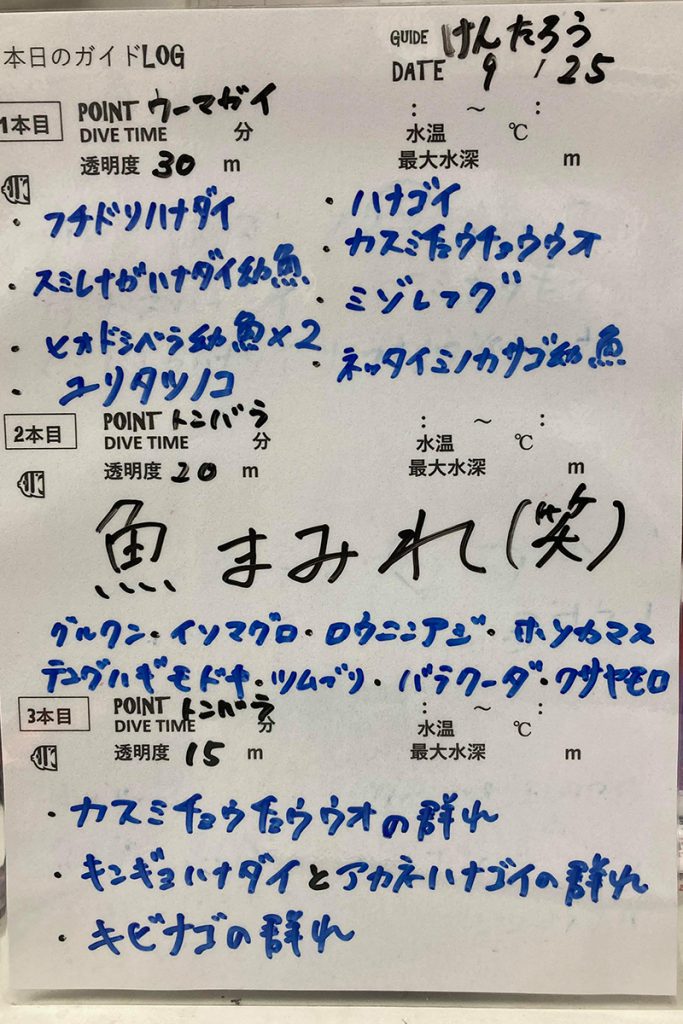 本日のガイドLOG
GUIDE けんたろう
DATE 9 / 25
1本目 POINT ウーマガイ : ～ :
DIVE TIME 分 水温 ℃
透明度 30 m 最大水深 m
・フチドリハナダイ
・ハナゴイ
・スミレナガハナダイ幼魚
・カスミチョウチョウウオ
・ヒオドシベラ幼魚×2
・ミゾレフグ
・ユリタツノコ
・ネッタイミノカサゴ幼魚
2本目 POINT トンバラ : ～ :
DIVE TIME 分 水温 ℃
透明度 20 m 最大水深 m
魚まみれ(笑)
グルクン・イソマグロ・ロウニンアジ・ホソカマス
テングハギモドキ・ツムブリ・バラクーダ・クサヤモロ
3本目 POINT トンバラ : ～ :
DIVE TIME 分 水温 ℃
透明度 15 m 最大水深 m
・カスミチョウチョウウオの群れ
・キンギョハナダイとアカネハナゴイの群れ
・キビナゴの群れ